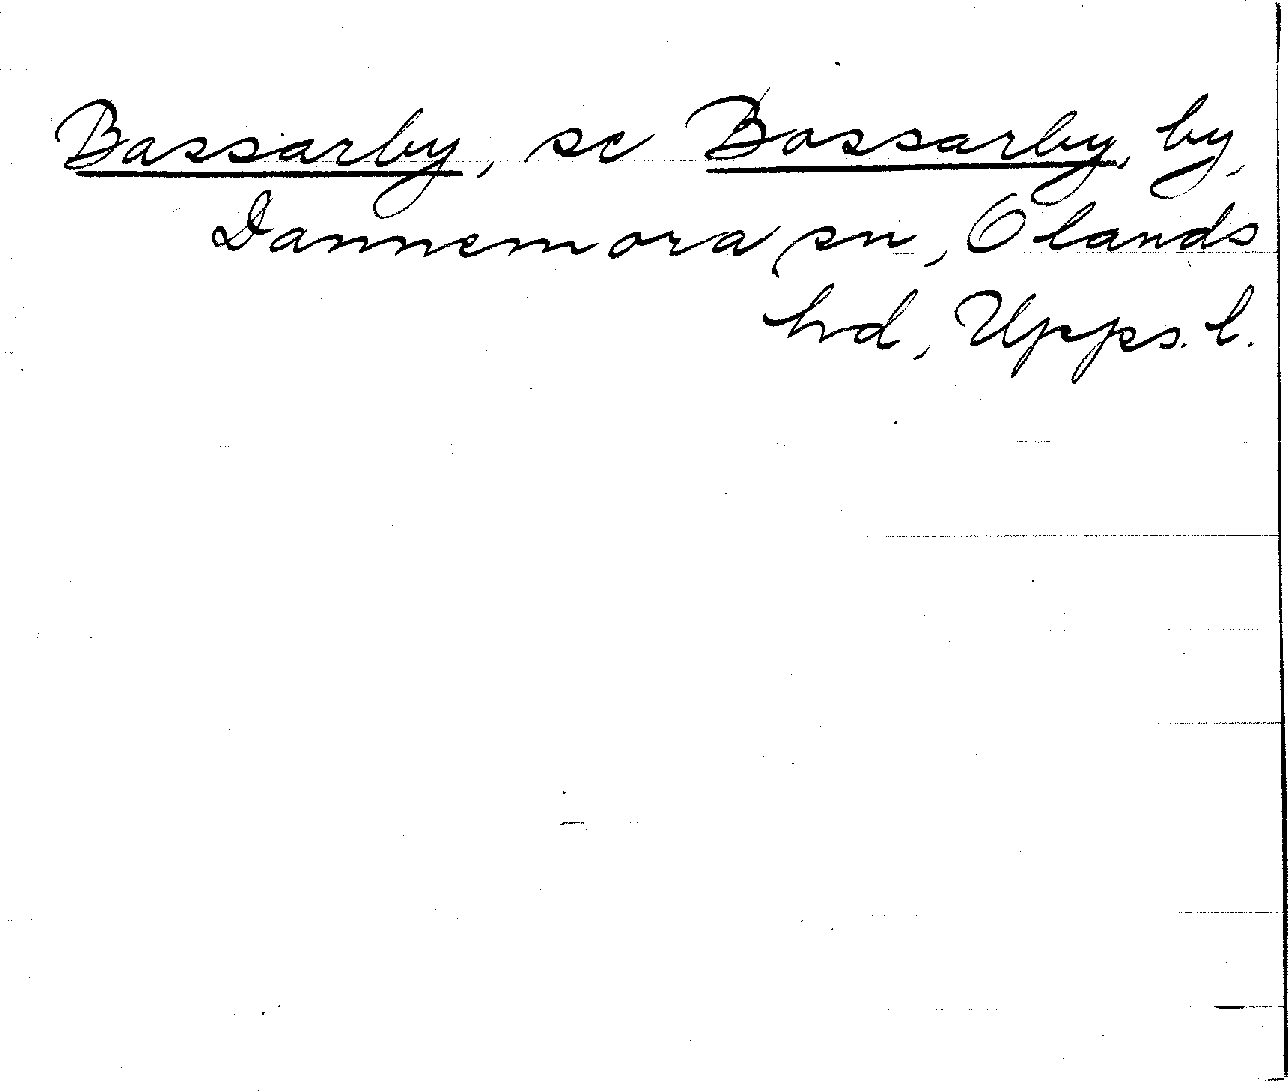 Bassarby, se Bossarby, by,
Dannemora sn, Olands
hd, Upps. l.